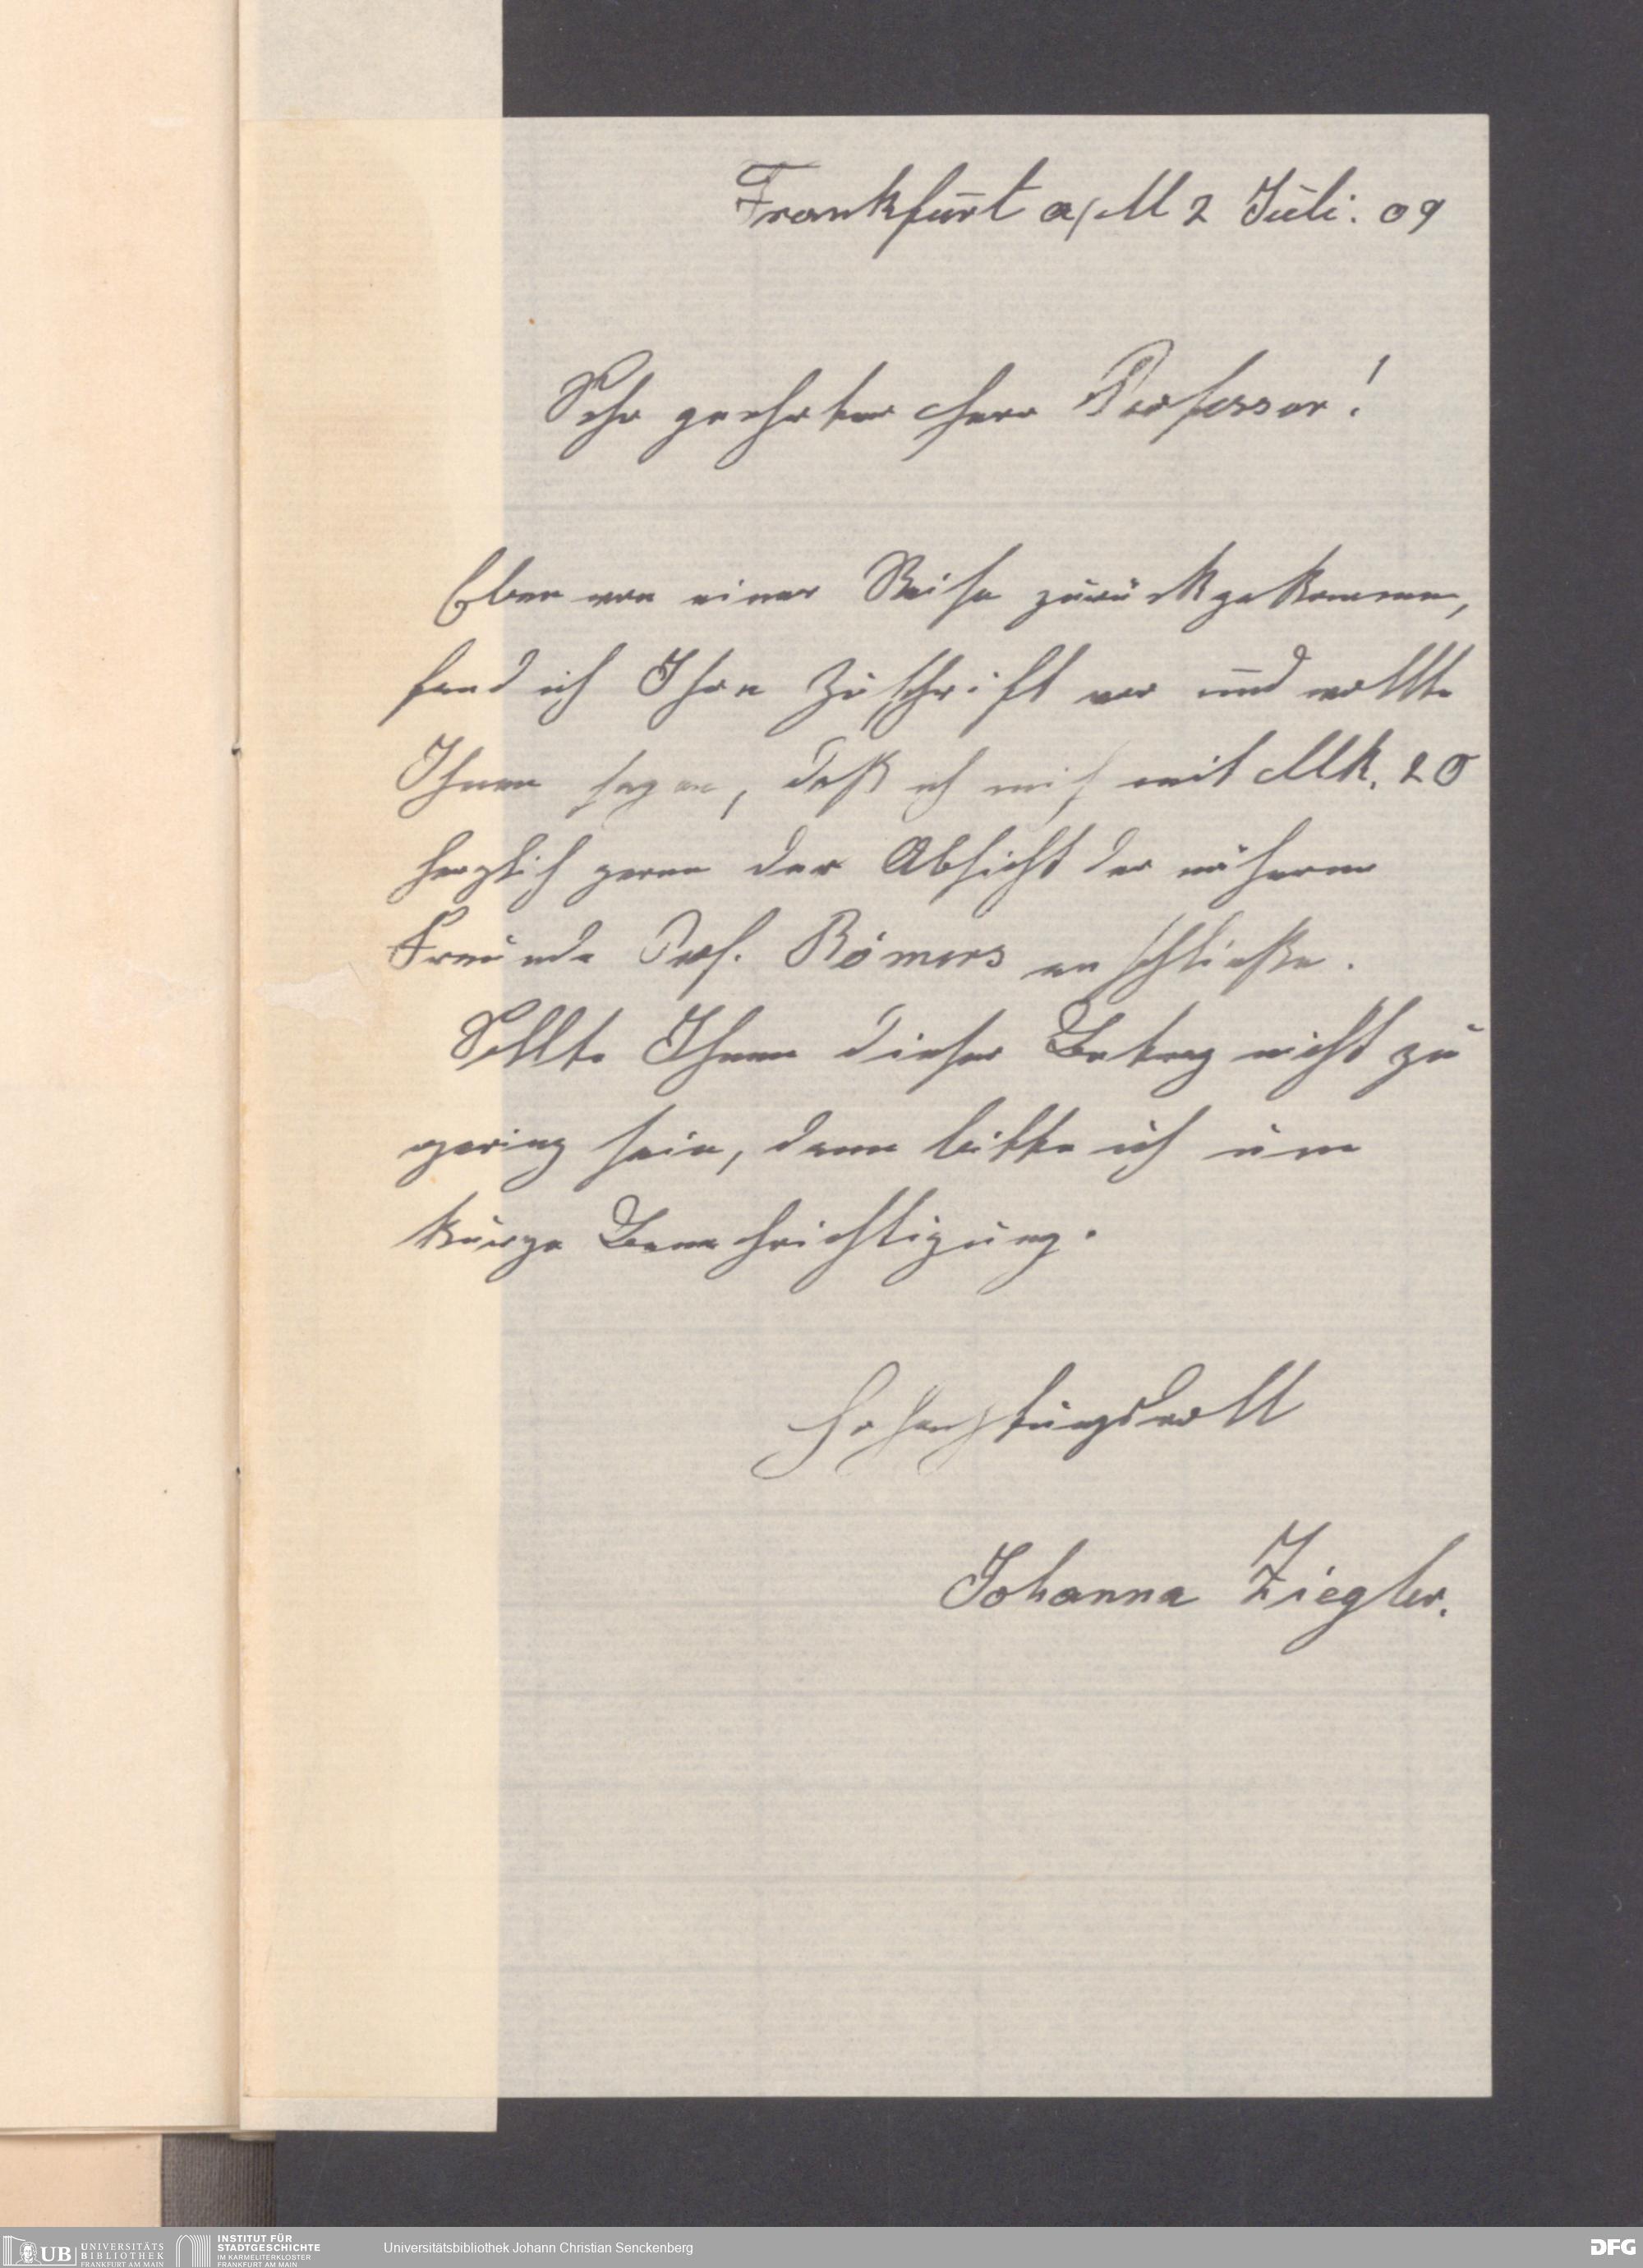 Frankfurt a/M 2 Juli. 09
Sehr geehrter Herr Professor!
Eben von einer Reise zurückgekommen,
fand ich Ihre Zuschrift vor und wollte
Ihnen sagen, daß ich mich mit Mk. 20
herzlich gerne der Absicht der näheren
Freunde Prof. Römers anschließe.
Sollte Ihnen dieser Betrag nicht zu
gering sein, dann bitte ich um
kurze Benachrichtigung.
Hochachtungsvoll
Johanna Ziegler.
UB UNIVERSITÄTS
BIBLIOTHEK
FRANKFURT AM MAIN
INSTITUT FÜR
STADTGESCHICHTE
IM KARMELITERKLOSTER
FRANKFURT AM MAIN
Universitätsbibliothek Johann Christian Senckenberg
DFG